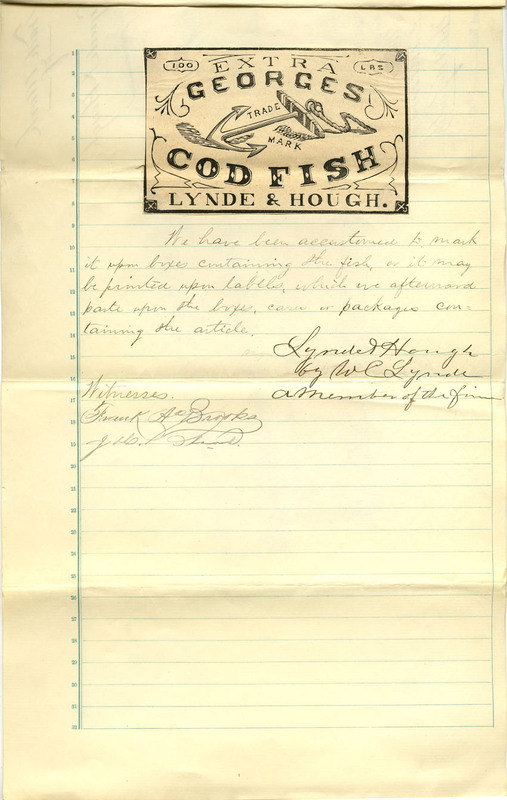 100 EXTRA LBS
GEORGES
TRADE
MARK
COD FISH
LYNDE & HOUGH.
We have been accustomed to mark
it upon boxes containing the fish, or it may
be printed upon labels, which we afterward
paste upon the boxes, cases or packages con-
taining the article.
Lynde & Hough
by W C Lynde
a member of the firm
Witnesses.
Frank A. Brooks
1
2
3
4
5
6
7
8
9
10
11
12
13
14
15
16
17
18
19